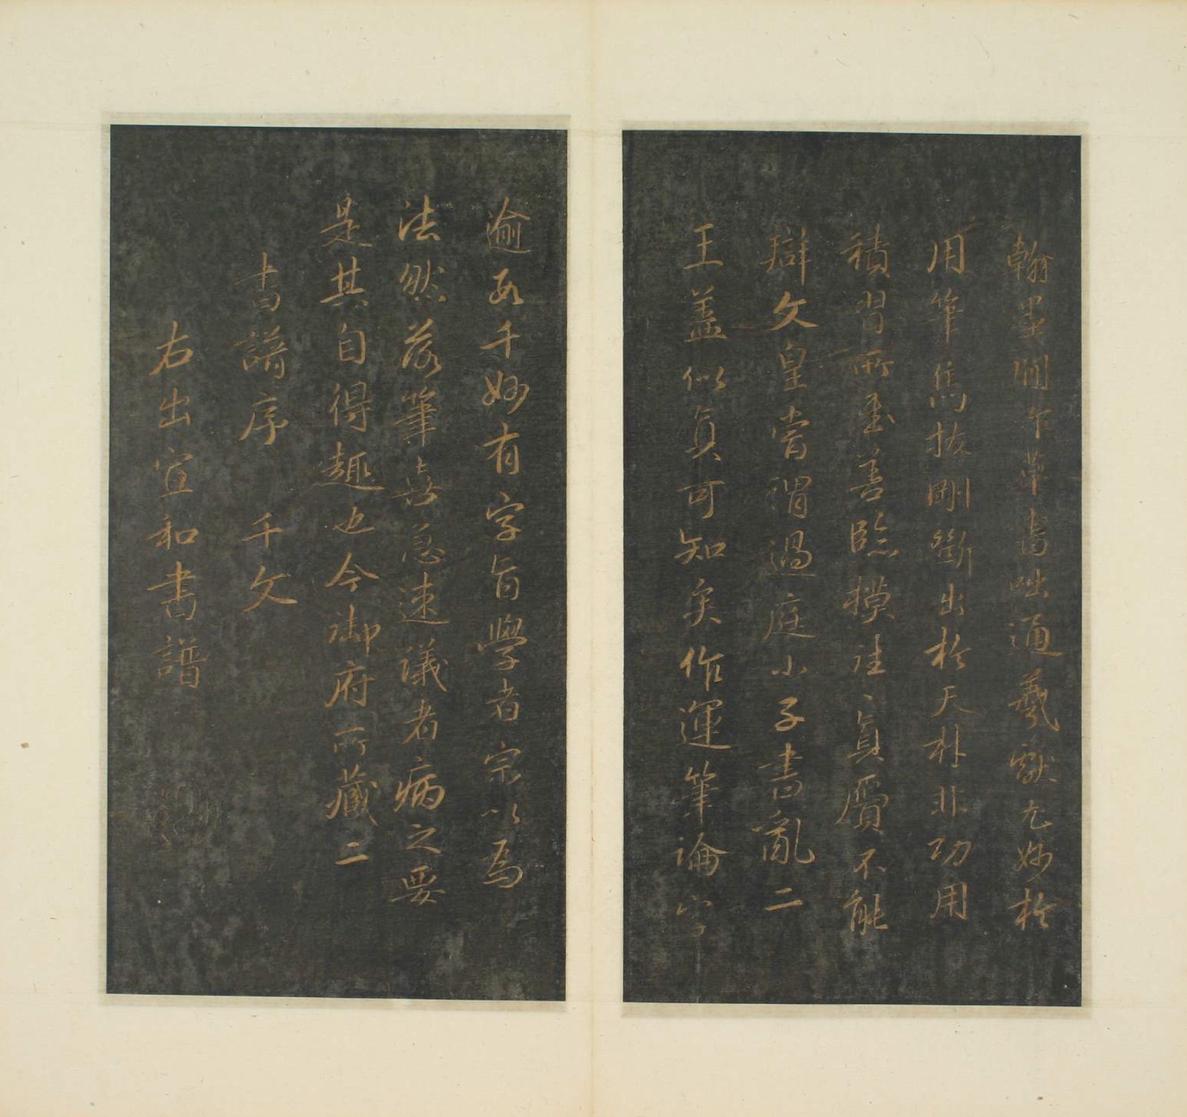 翰墨間作草書咄逼羲獻尤妙於
用筆雋拔剛斷出於天材非功用
積習所至善臨模往往真贗不能
辯文皇嘗謂過庭小子書亂二
王蓋似真可知矣作運筆論字
逾數千妙有字旨學者宗以為
法然落筆喜急速議者病之要
是其自得趣也今御府所藏二
書譜序 千文
右出宣和書譜